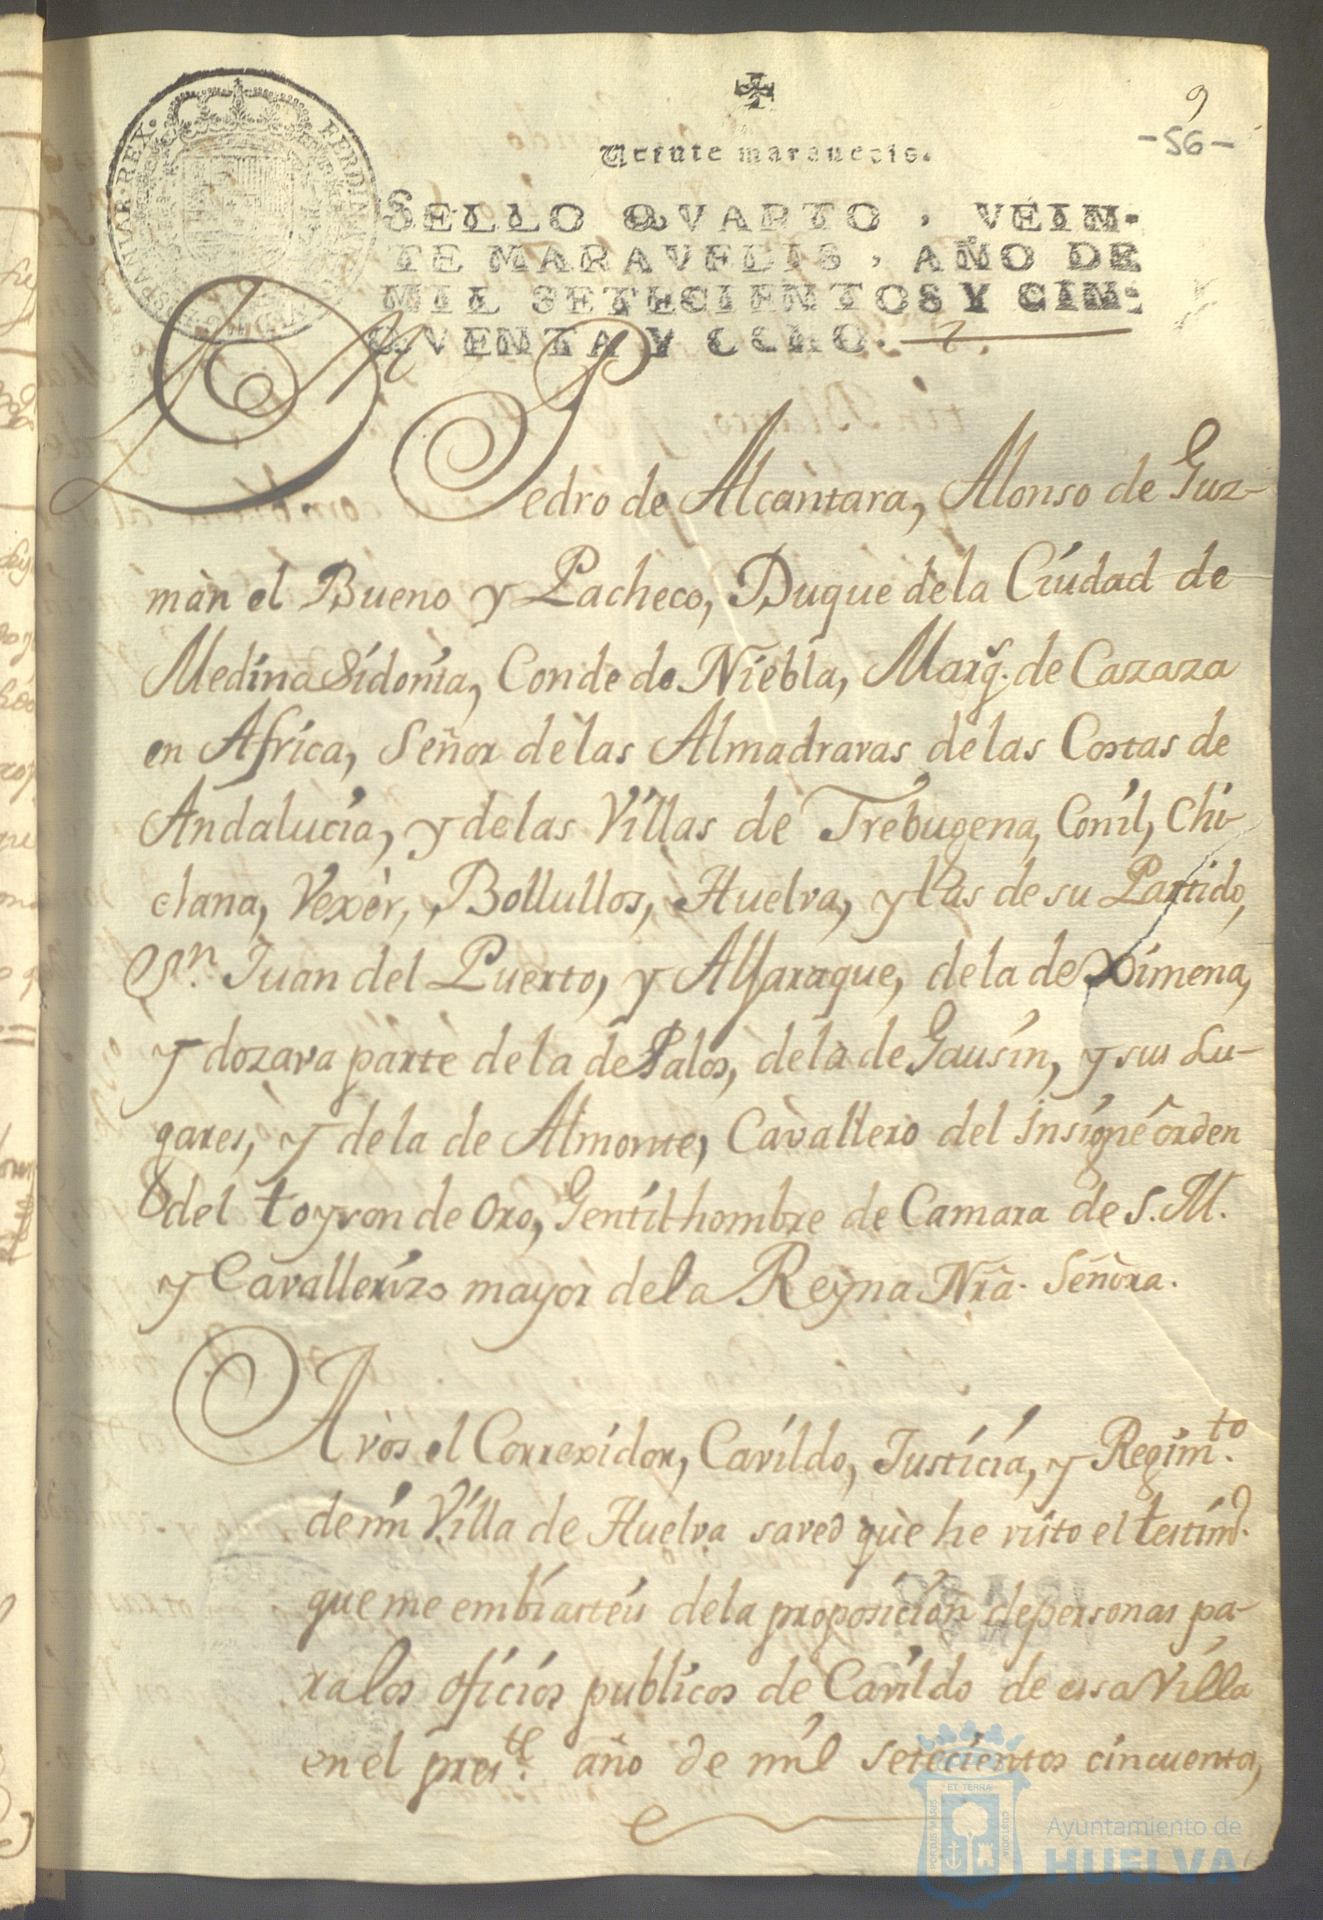 9
-56-
Veinte maravedis.
SELLO QVARTO, VEIN-
TE MARAVEDIS, AÑO DE
MIL SETECIENTOS Y CIN-
QVENTA Y OCHO.
HISPANIAR·REX·
Dn Pedro de Alcantara, Alonso de Guz-
màn el Bueno y Pacheco, Duque de la Ciudad de
Medina Sidonia, Conde de Niebla, Marq.s de Cazaza
en Africa, Señor de las Almadravas de las Costas de
Andalucia, y de las Villas de Trebugena, Conil, Chi-
clana, Vexèr, Bollullos, Huelva, y las de su Partido,
Sn. Juan del Puerto, y Alfaraque, de la de Ximena,
y dozava parte de la de Palos, de la de Gausin, y sus Lu-
gares, y de la de Almonte, Cavallero del insigne orden
del toyson de Oro, Gentilhombre de Camara de S.M.
y Cavallerizo mayor de la Reyna Nrâ. Señora.
A vòs el Correxidor, Cavildo, Justicia, y Regim.to
de mi Villa de Huelva saved què he visto el testim.o
que me embiasteis de la proposicion de personas pa-
ra los oficios publicos de Cavildo de essa Villa
en el pres.te año de mil setecientos cincuenta,
PORTUS MARIS
ET TERRA
CUSTODIA
Ayuntamiento de
HUELVA